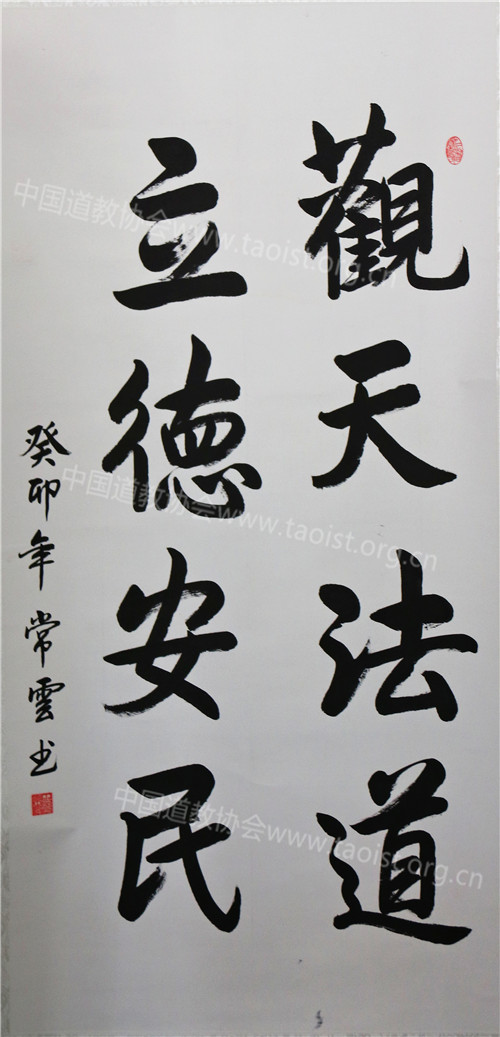 觀天法道
立德安民
癸卯年常雲书
中国道教协会www.taoist.org.cn
中国道教协会www.taoist.org.cn
中国道教协会www.taoist.org.cn